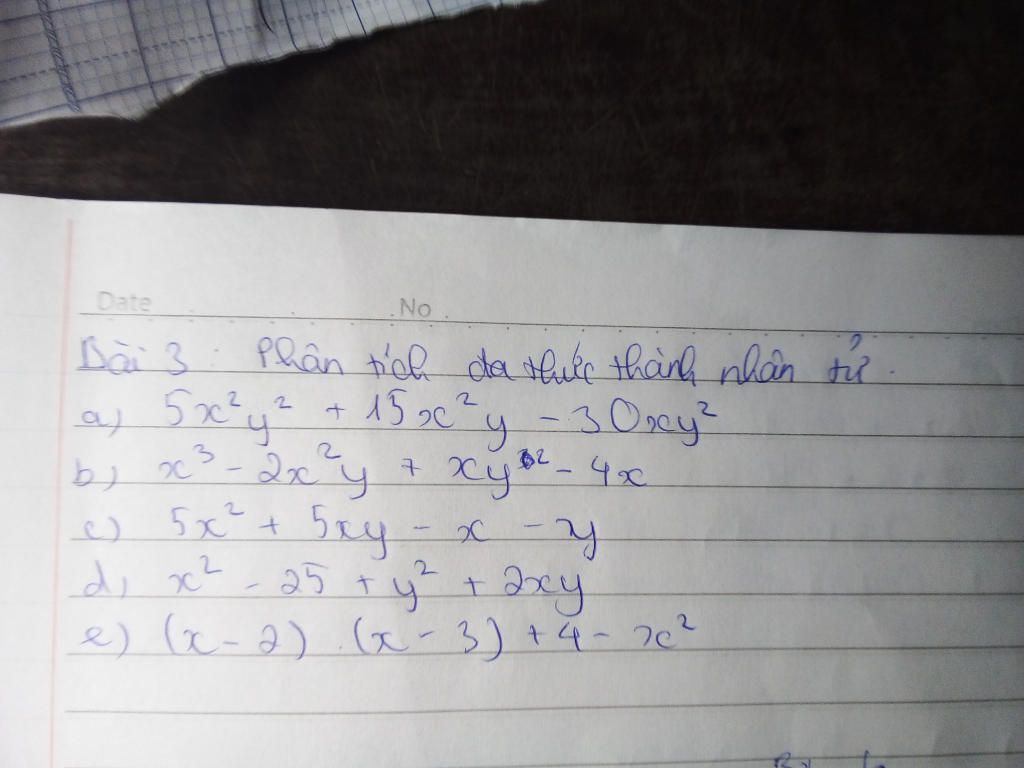 Date No
Bài 3 : Phân tích đa thức thành nhân tử.
a) 5x²y² + 15x²y - 30xy²
b) x³ - 2x²y + xy² - 4x
c) 5x² + 5xy - x - y
d) x² - 25 + y² + 2xy
e) (x - 2) . (x - 3) + 4 - x²